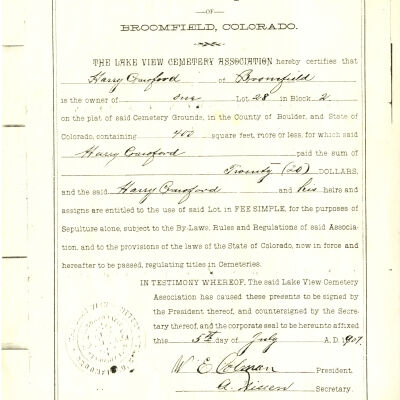 —OF—
BROOMFIELD, COLORADO.
THE LAKE VIEW CEMETERY ASSOCIATION hereby certifies that
Harry Crawford of Broomfield
is the owner of one Lot 28 in Block 2
on the plat of said Cemetery Grounds, in the County of Boulder, and State of
Colorado, containing 400 square feet, more or less, for which said
Harry Crawford paid the sum of
Twenty (20) DOLLARS,
and the said Harry Crawford and his heirs and
assigns are entitled to the use of said Lot in FEE SIMPLE, for the purposes of
Sepulture alone, subject to the By-Laws, Rules and Regulations of said Associa-
tion, and to the provisions of the laws of the State of Colorado, now in force and
hereafter to be passed, regulating titles in Cemeteries.
IN TESTIMONY WHEREOF, The said Lake View Cemetery
Association has caused these presents to be signed by
the President thereof, and countersigned by the Secre-
tary thereof, and the corporate seal to be hereunto affixed
this 5th day of July A.D. 1907.
W E Colman President,
A. Nissen Secretary.